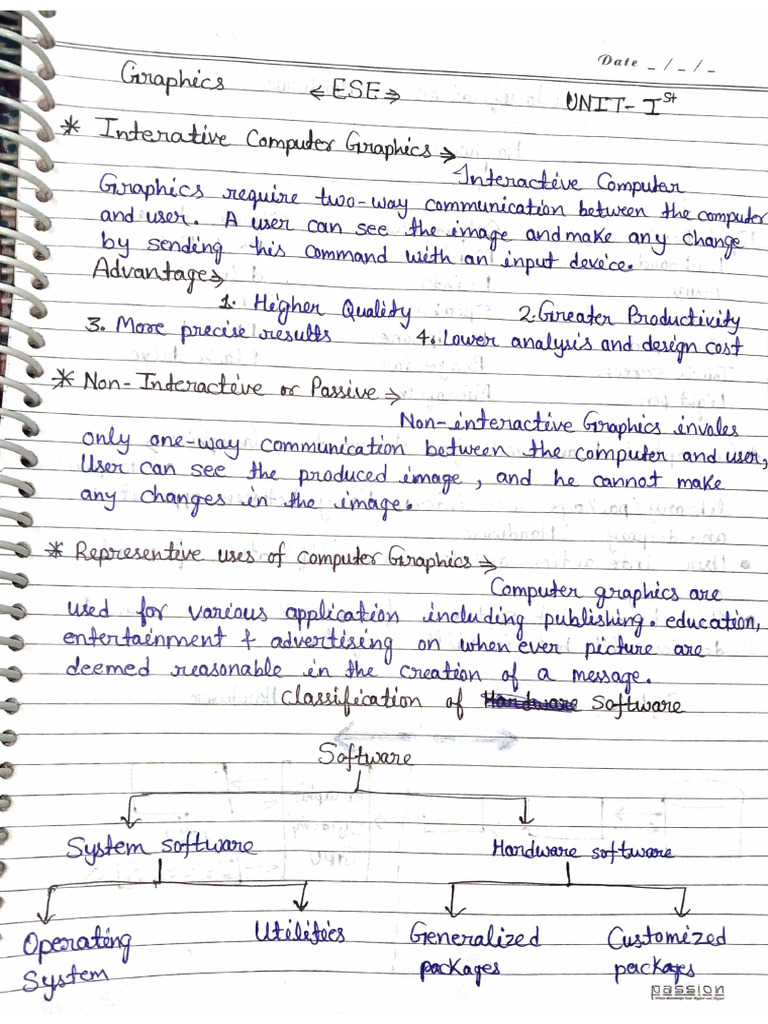 Date _ / _ / _
Graphics <ESE> UNIT-I St
* Interative Computer Graphics →
Interactive Computer
Graphics require two-way communication between the computer
and user. A user can see the image and make any change
by sending this command with an input device.
Advantage →
1. Higher Quality 2. Greater Productivity
3. More precise results 4. Lower analysis and design cost
* Non-Interactive or Passive →
Non-interactive Graphics involes
only one-way communication between the computer and user,
User can see the produced image, and he cannot make
any changes in the image.
* Representive uses of computer Graphics →
Computer graphics are
used for various application including publishing. education,
entertainment & advertising on when ever picture are
deemed reasonable in the creation of a message.
Classification of Software
Software
System software Hardware software
Operating System Utilities Generalized packages Customized packages
passion